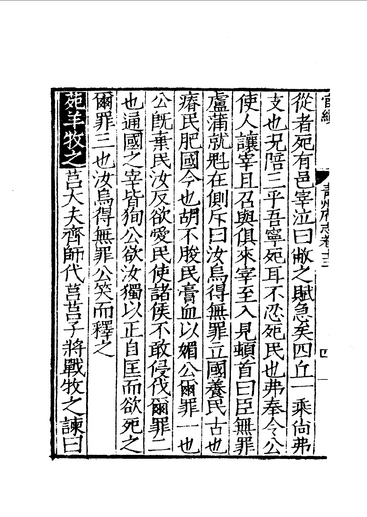 官績
青州府志卷十三
四
從者宛有邑宰泣曰敝之賦急矣四丘一乘尚弗
支也況陪三乎吾寧死耳不忍死民也弗奉令公
使人讓宰且召與俱來宰至入見頓首曰臣無罪
盧蒲就魁在側斥曰汝烏得無罪立國養民古也
瘠民肥國今也胡不朘民膏血以媚公爾罪一也
公旣棄民汝反欲愛民使諸侯不敢侵伐爾罪二
也通國之宰皆狥公欲汝獨以正自匡而欲死之
爾罪三也汝烏得無罪公笑而釋之
苑羊牧之莒大夫齊師伐莒莒子將戰牧之諫曰